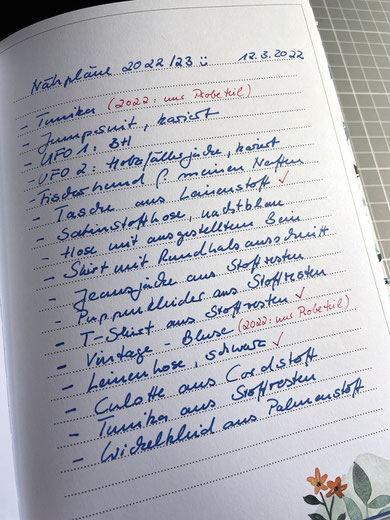 Nähpläne 2022/23 ü 12.3.2022
- Tunika (2022: nur Probeteil)
- Jumpsuit, kariert
- UFO 1: BH
- UFO 2: Holzfällerjacke, kariert
- Fischerhemd f. meinen Neffen
- Tasche aus Leinenstoff ✓
- Satinstoffhose, nachtblau
- Hose mit ausgestelltem Bein
- Shirt mit Rundhalsausschnitt
- Jeansjacke aus Stoffresten
- Puppenkleider aus Stoffresten
- T-Shirt aus Stoffresten ✓
- Vintage-Bluse (2022: nur Probeteil)
- Leinenhose, schwarz ✓
- Culotte aus Cordstoff
- Tunika aus Stoffresten
- Wickelkleid aus Palmenstoff